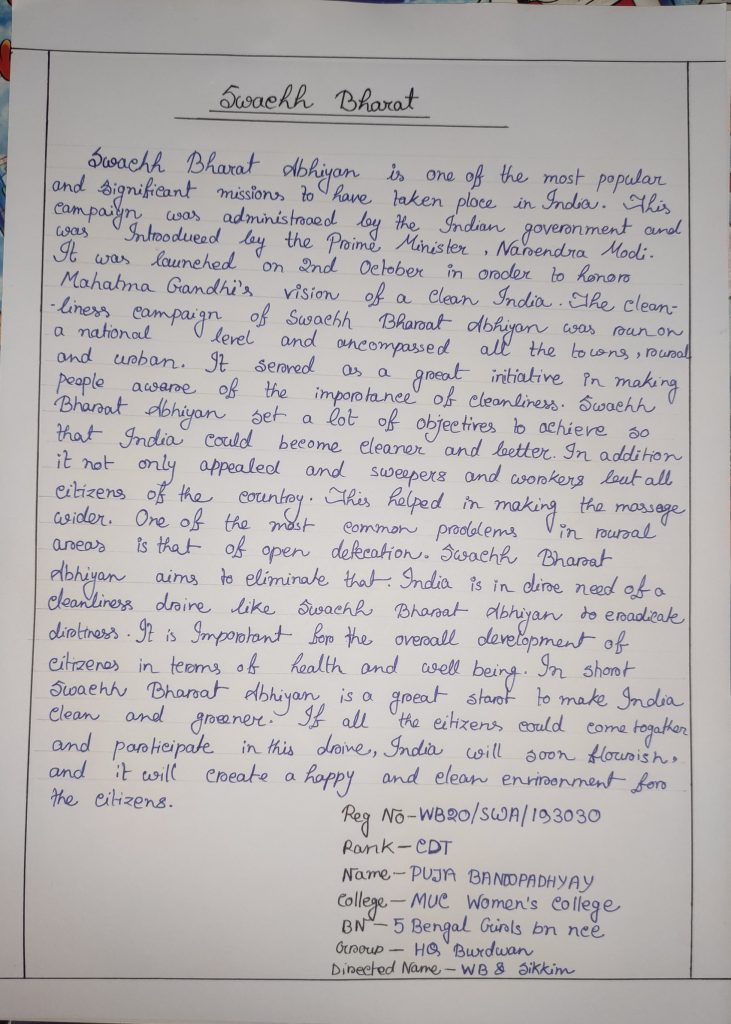 Swachh Bharat
Swachh Bharat Abhiyan is one of the most popular
and significant missions to have taken place in India. This
campaign was administraed by the Indian government and
was Introduced by the Prime Minister, Narendra Modi.
It was launched on 2nd October in order to honor
Mahatma Gandhi's vision of a clean India. The clean-
-liness campaign of Swachh Bharat Abhiyan was run on
a national level and ancompassed all the towns, rural
and urban. It served as a great initiative in making
people aware of the importance of cleanliness. Swachh
Bharat Abhiyan set a lot of objectives to achieve so
that India could become cleaner and better. In addition
it not only appealed and sweepers and workers but all
citizens of the country. This helped in making the massage
wider. One of the most common problems in rural
areas is that of open defecation. Swachh Bharat
Abhiyan aims to eliminate that. India is in dire need of a
cleanliness drive like Swachh Bharat Abhiyan to eradicate
dirtness. It is Important for the overall development of
citizenes in terms of health and well being. In short
Swachh Bharat Abhiyan is a great start to make India
clean and greener. If all the citizens could come togather
and participate in this drive, India will soon flourish,
and it will create a happy and clean environment for
the citizens.
Reg No-WB20/SWA/193030
Rank-CDT
Name-PUJA BANDOPADHYAY
College-MUC Women's College
BN-5 Bengal Girls bn ncc
Group-HQ Burdwan
Directed Name-WB & Sikkim